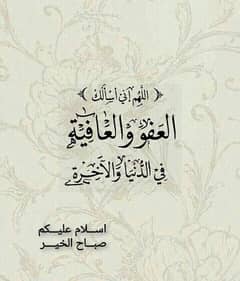 ﴿ اللهم إني أسألك ﴾
العفو والعافية
في الدنيا والآخرة
اسلام عليكم
صباح الخير